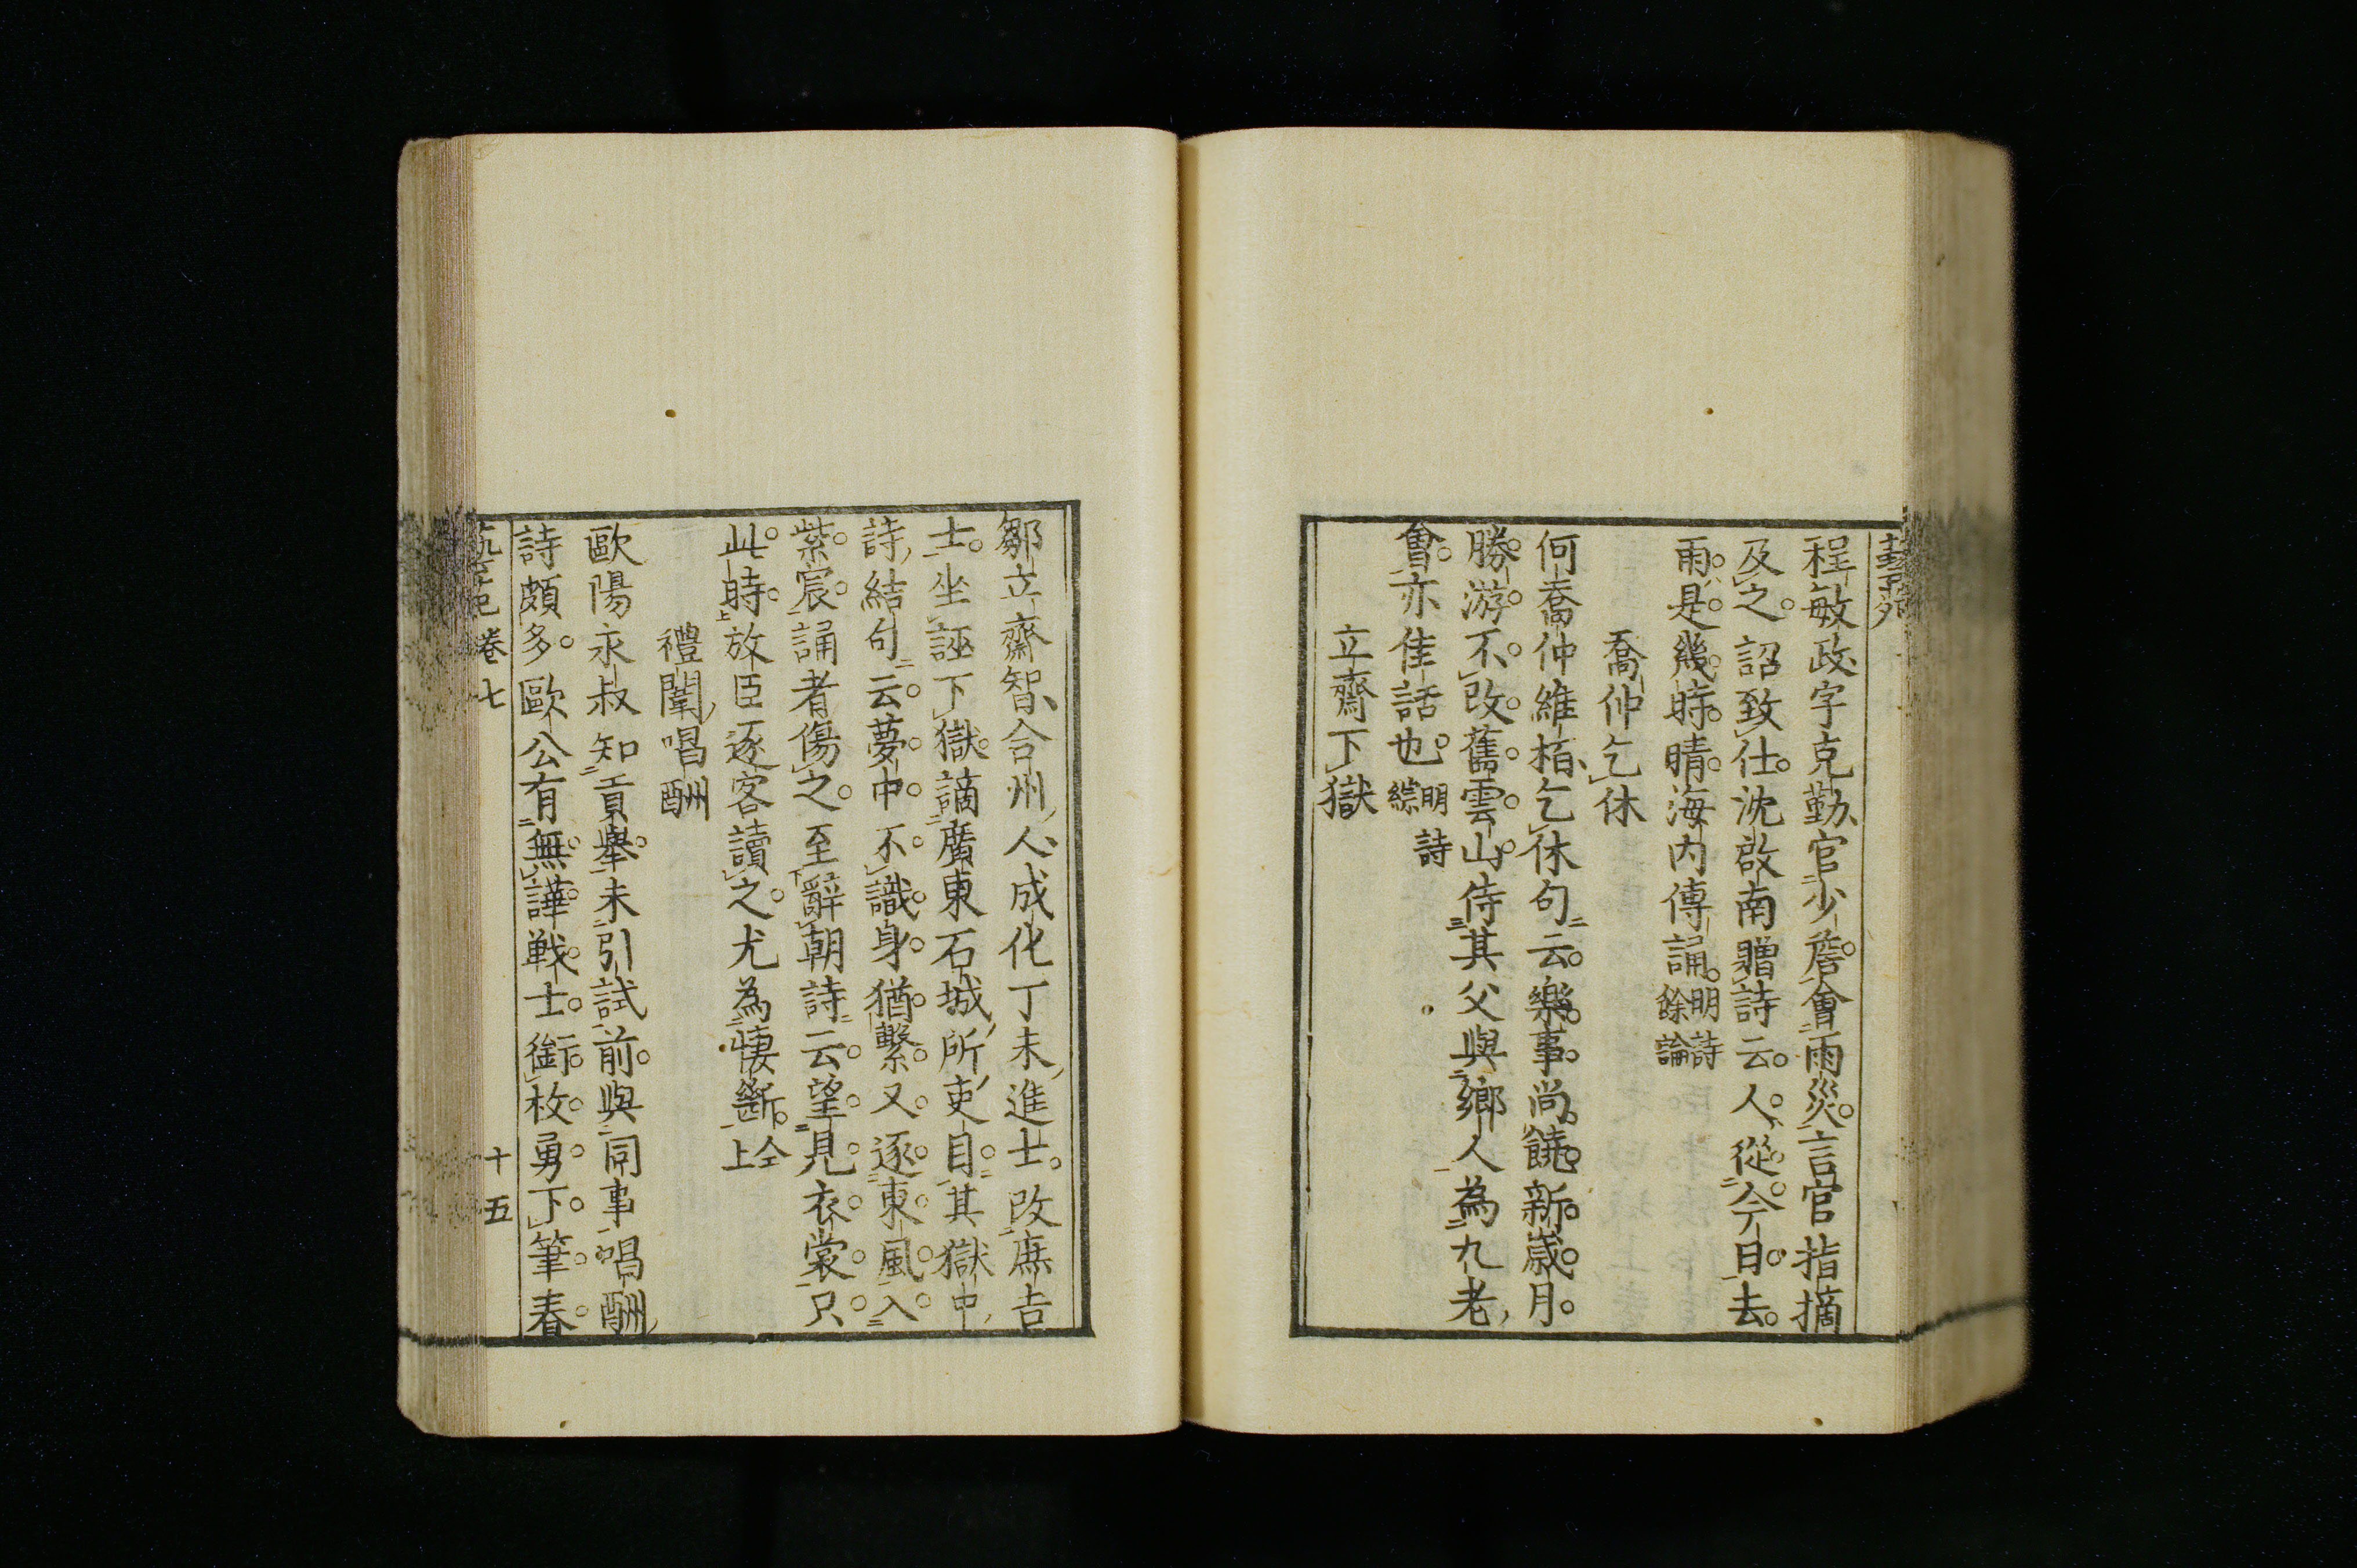 程敏政字克勤官少詹會雨災言官指摘
及之詔致仕沈啟南贈詩云人從今日去
雨是幾時晴海内傳誦明詩餘論
喬仲乞休
何喬仲維栢乞休句云樂事尚饒新歲月
勝游不改舊雲山侍其父與鄉人為九老
會亦佳話也明詩綜
立齋下獄
鄒立齋智合州人成化丁未進士改庶吉
士坐誣下獄謫廣東石城所吏目其獄中
詩結句云夢中不識身猶繫又逐東風入
紫宸誦者傷之至辭朝詩云望見衣裳只
此時放臣逐客讀之尤為悽斷仝上
禮闈唱酬
歐陽永叔知貢舉未引試前與同事唱酬
詩頗多歐公有無譁戰士銜枚勇下筆春
卷七
十五